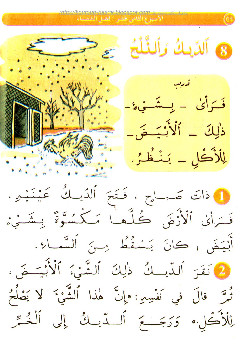 8 اَلدِّيكُ وَالثَّلْجُ
فَرَأَى – بِشَيْءٍ –
ذٰلِكَ – الْأَبْيَضَ –
لِلْأَكْلِ – يَنْظُرُ.
1 ذَاتَ صَبَاحٍ، فَتَحَ الدِّيكُ عَيْنَيْهِ،
فَرَأَى الْأَرْضَ كُلَّهَا مَكْسُوَّةً بِشَيْءٍ
أَبْيَضَ، كَانَ يَسْقُطُ مِنَ السَّمَاءِ.
2 نَقَرَ الدِّيكُ ذٰلِكَ الشَّيْءَ الْأَبْيَضَ،
ثُمَّ قَالَ فِي نَفْسِهِ: «إِنَّ هٰذَا الشَّيْءَ لَا يَصْلُحُ
لِلْأَكْلِ.» وَرَجَعَ الدِّيكُ إِلَى الْخُمِّ